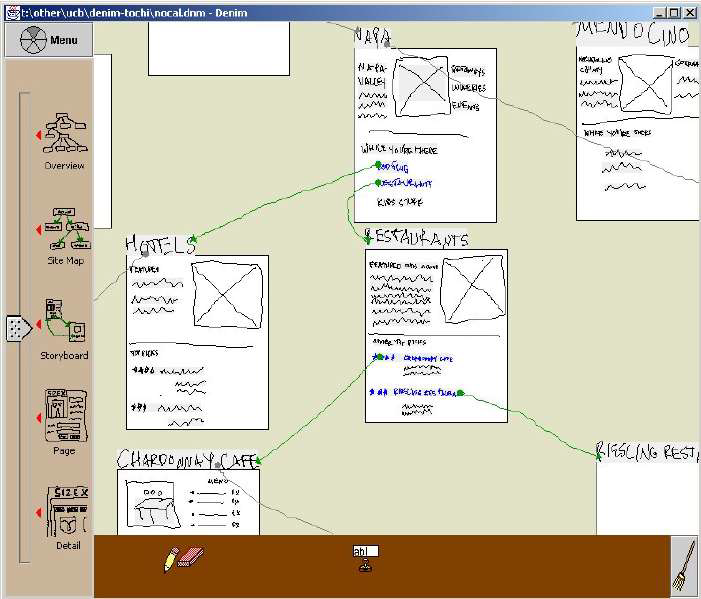 t:\other\ucb\denim-tochi\nocal.dnm - Denim
Menu
Overview
Site Map
Storyboard
Page
Detail
NAPA
NAPA
VALLEY
GETAWAYS
WINERIES
EVENTS
WHILE YOU'RE THERE
LODGING
RESTAURANTS
KIDS STUFF
MENDOCINO
WHILE YOU'RE
HOTELS
FEATURED
TOP PICKS
RESTAURANTS
FEATURED THIS
OTHER TOP PICKS
CHARDONNAY CAFE
RIESLING RESTAURA
CHARDONNAY CAFE
MENU
RIESLING REST
SIZEX
SIZEX
abl